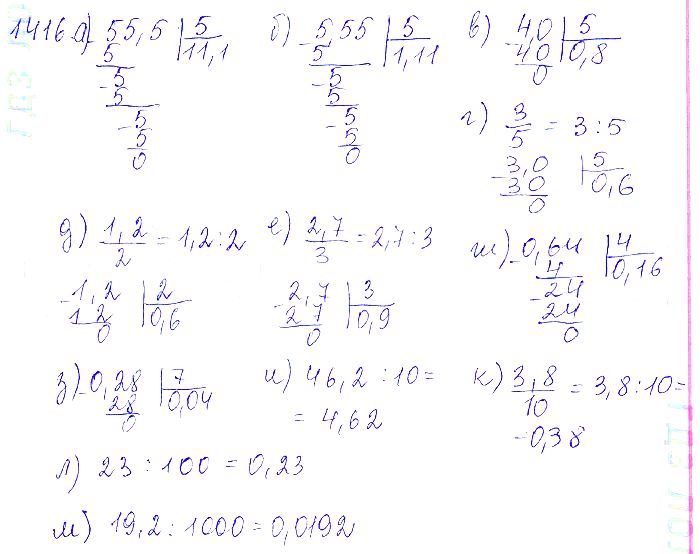 1416 а) 55,5 | 5
5 | 11,1
-5
5
-5
5
0
б) -5,55 | 5
5 | 1,11
-5
5
-5
5
0
в) -4,0 | 5
40 | 0,8
0
г) 3/5 = 3 : 5
-3,0 | 5
30 | 0,6
0
д) 1,2/2 = 1,2 : 2
-1,2 | 2
12 | 0,6
0
е) 2,7/3 = 2,7 : 3
-2,7 | 3
27 | 0,9
0
ж) -0,64 | 4
4 | 0,16
-24
24
0
з) -0,28 | 7
28 | 0,04
0
и) 46,2 : 10 =
= 4,62
к) 3,8/10 = 3,8 : 10 =
-0,38
л) 23 : 100 = 0,23
м) 19,2 : 1000 = 0,0192